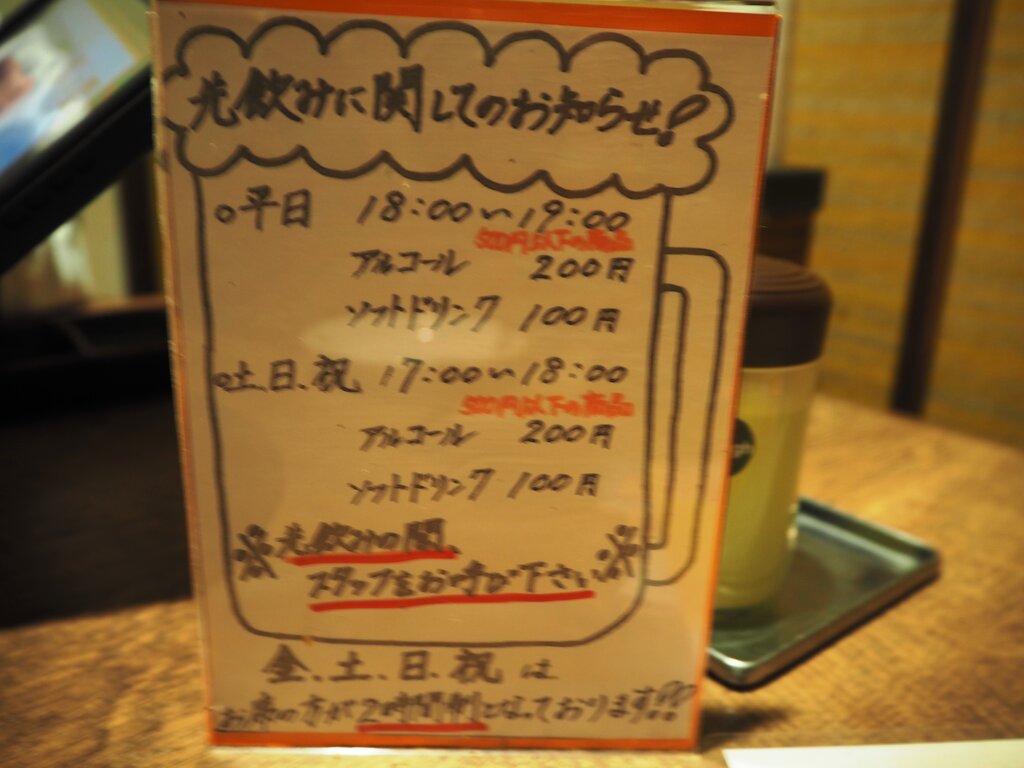 先飲みに関してのお知らせ!
○平日 18:00~19:00
500円以下の商品
アルコール 200円
ソフトドリンク 100円
○土、日、祝 17:00~18:00
500円以下の商品
アルコール 200円
ソフトドリンク 100円
先飲みの間、
スタッフをお呼び下さい
金、土、日、祝 は
お席の方が2時間制となっております!!